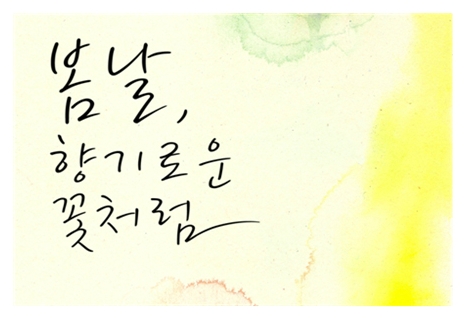 봄날,
향기로운
꽃처럼